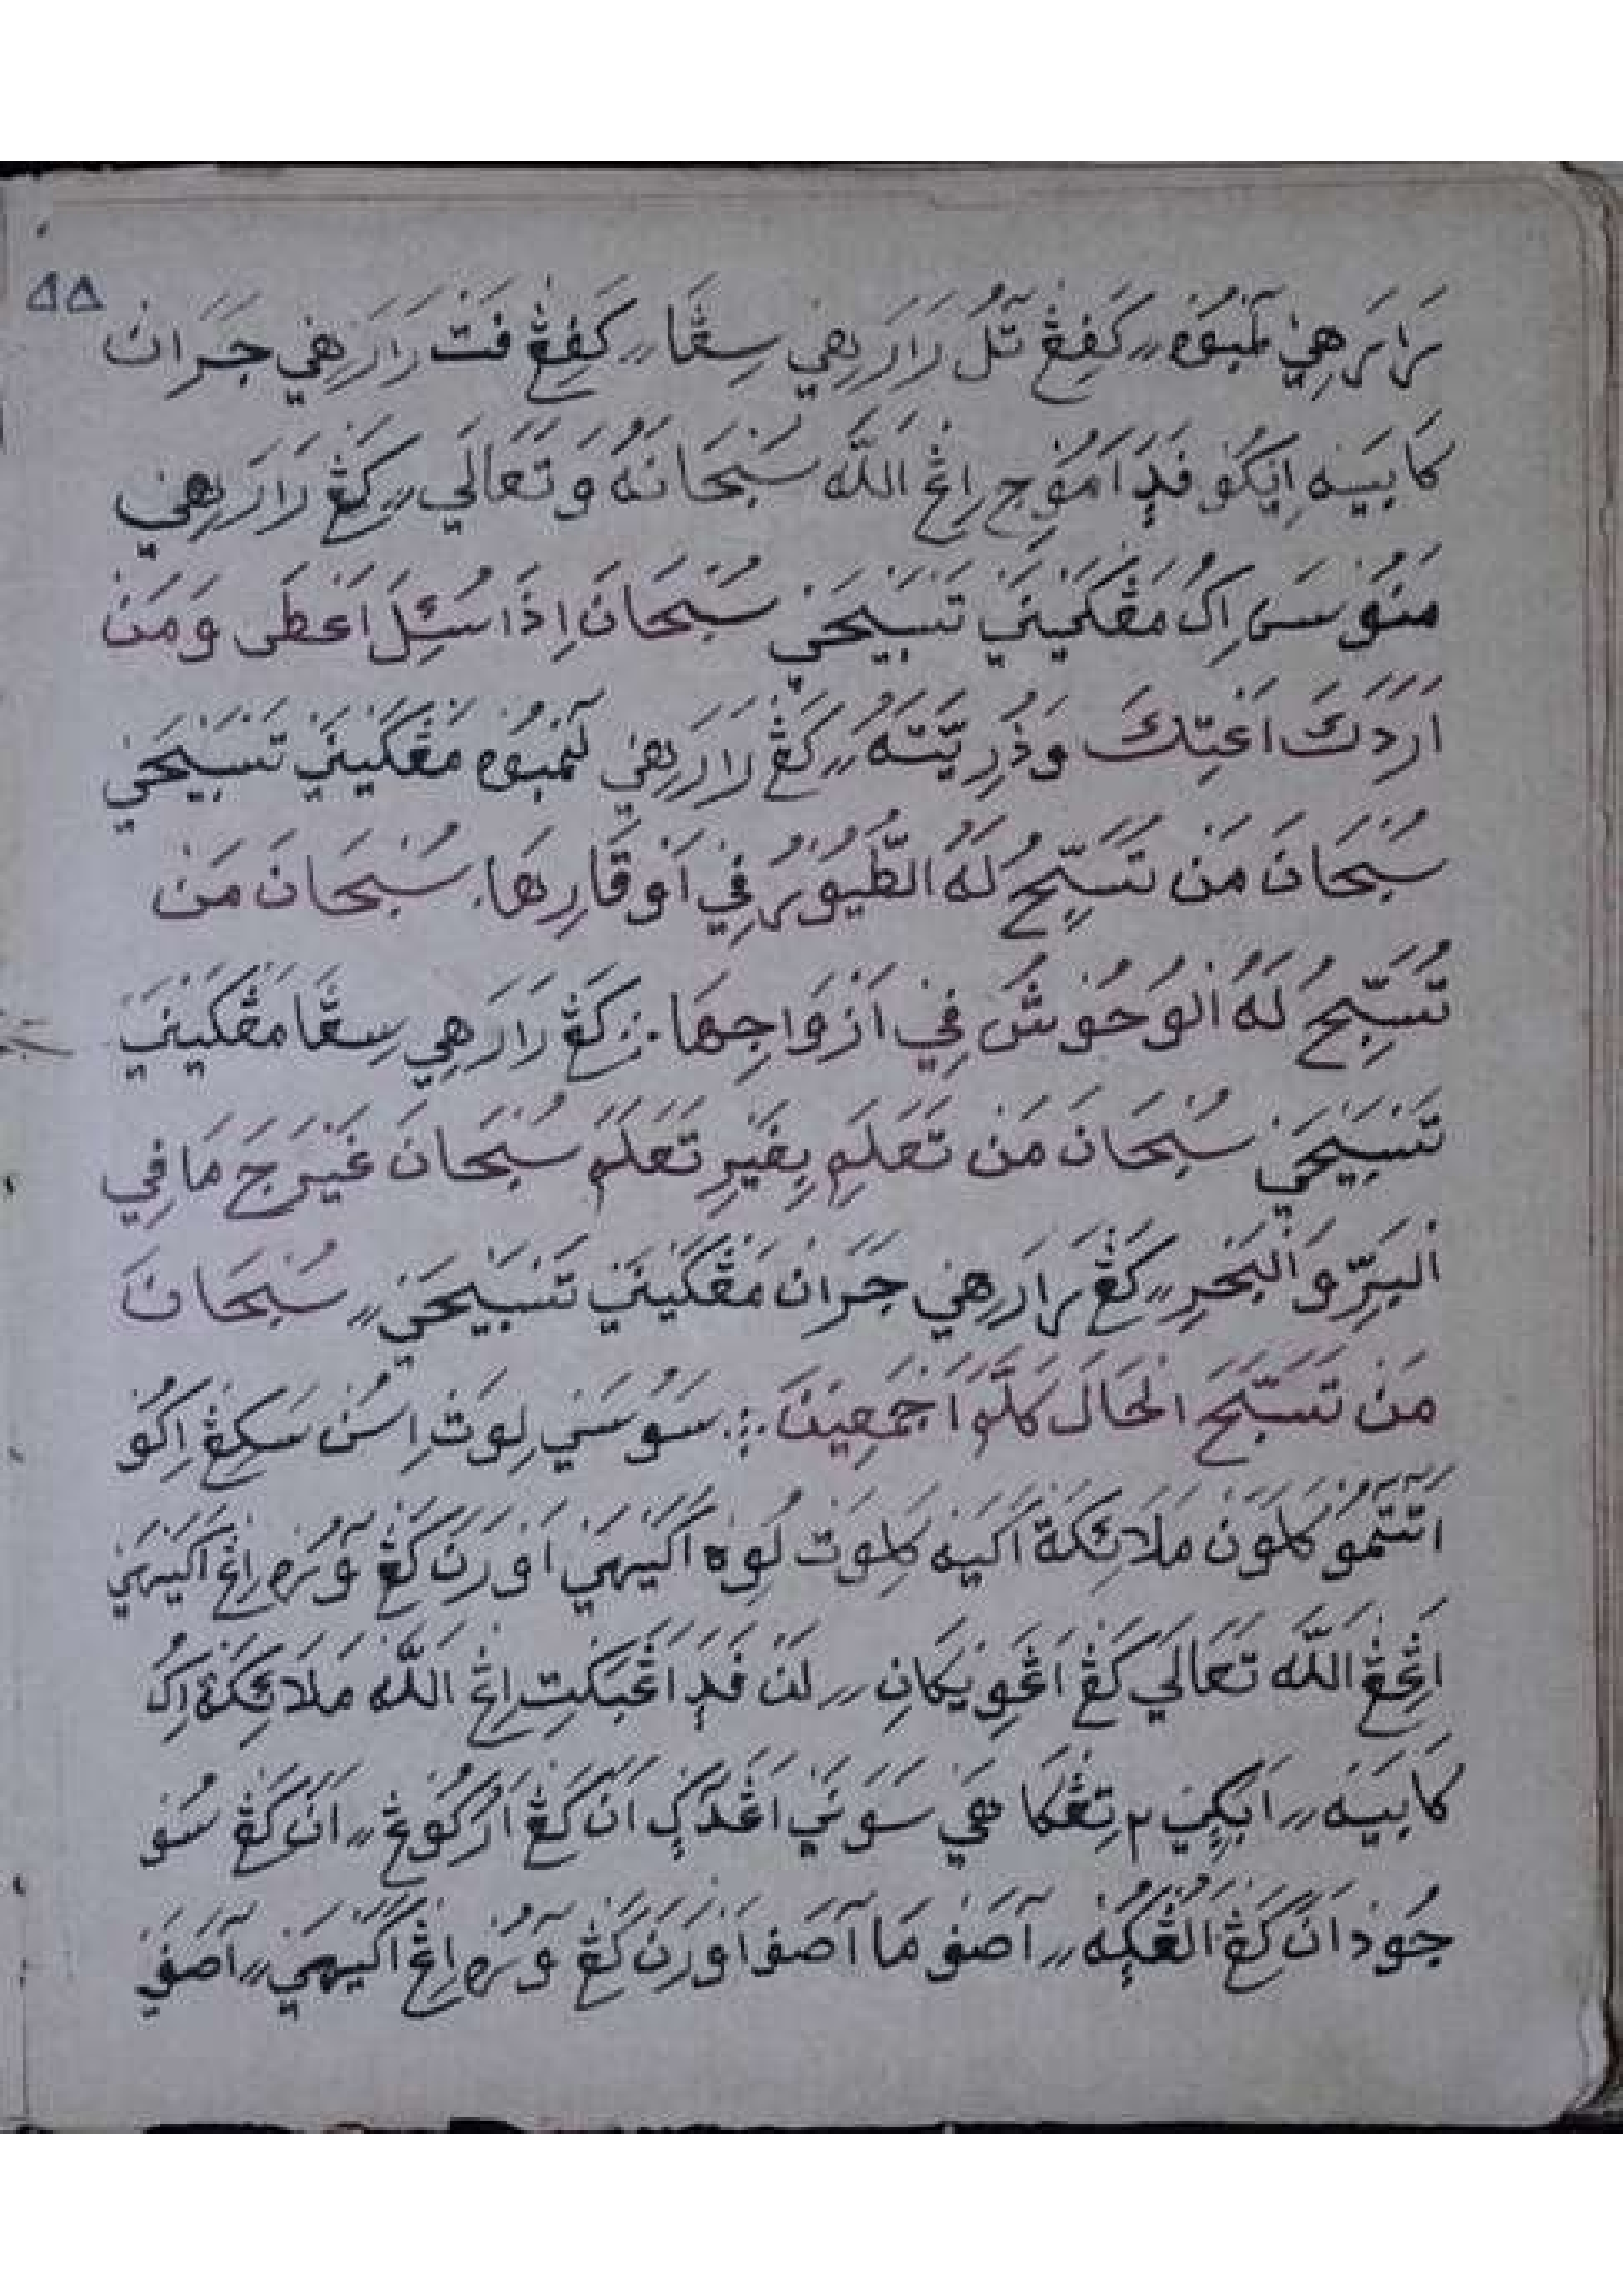 ٥٥
رَارَهِيْ لَمْبُوْه ؍؍ كَفِڠْ تٓلُ رَارَهِيْ سِڠَا ؍؍ كَفِڠْ فَتْ رَارَهِيْ جَرَانْ
كَابَيَيْه اِيْكُوْ فَدَا مُوْجِ اِڠْ اللّٰه سُبْحَانَهُ وَتَعَالَي ؍؍ كَڠْ رَارَهِيْ
مَنُوْسَ اِكُ مَڠْكَيْنَيْ تَسْبَيْحَيْ سُبْحَانَ اِذَا سُئِلَ اَعْطَى وَمَنْ
اَرَدَكَ اَعْتِكَ وَذُرِيَّتَهُ ؍؍ كَڠْ رَارَهِيْ لَمْبُوْه مَڠْكَيْنَيْ تَسْبَيْحَيْ
سُبْحَانَ مَنْ تُسَبِّحُ لَهُ الطُّيُوْرُ فِيْ اَوْقَارِهَا. سُبْحَانَ مَنْ
تُسَبِّحُ لَهُ الْوُحُوْشُ فِيْ اَزْوَاجِهَا ؞ كَڠْ رَارَهِيْ سِڠَا مَڠْكَيْنَيْ
تَسْبَيْحَيْ سُبْحَانَ مَنْ تَعَلَمِ بِغَيْرِ تَعَلَمَ سُبْحَانَ غَيْرَجَ مَا فِي
الْبَرِّ وَالْبَحْرِ ؍؍ كَڠْ رَارَهِيْ جَرَانْ مَڠْكَيْنَيْ تَسْبَيْحَيْ ؍؍ سُبْحَانَ
مَنْ تَسَبَّحَ الْحَالَ كَلَّوَا جْمَعِيْنَ ؞ سَوُسَيْ لِوَتْ اِسُنْ سَكِڠْ اِكُوْ
اَتٓتٓمُوْ كَلَوَنْ مَلَائِكَةْ اَكَيْه كَلِوَتْ لُوَه اَكَيْهَيْ اَوْرَنَ كَڠْ وٓرُه اِڠْ اَكَيْهَيْ
اَنْجَڠْ اللّٰه تَعَالَي كَڠْ اَڠَوِيْكَانِ ؍؍ لَنْ فَدَ اَڠَبَكْتِ اِڠْ اللّٰه مَلَائِكَةْ اِكُ
كَابَيَيْه ؍؍ اَنَكَيْ٢ تِڠْكَاهَيْ سَوَنَيْ اَڠَدَكْ اَنَ كَڠْ اَرُكُوْعْ ؍؍ اَنَ كَڠْ سُوْ
جُوْدْ اَنَ كَڠْ الُڠْڮُه ؍؍ اٰصَفْ مَا اٰصَفْ اَوْرَنَ كَڠْ وٓرُه اِڠْ اَكَيْهَيْ ؍؍ اٰصَفَيْ